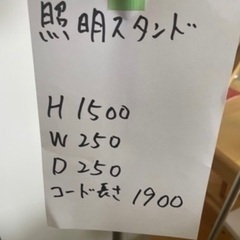 照明スタンド
H1500
W250
D250
コード長さ 1900